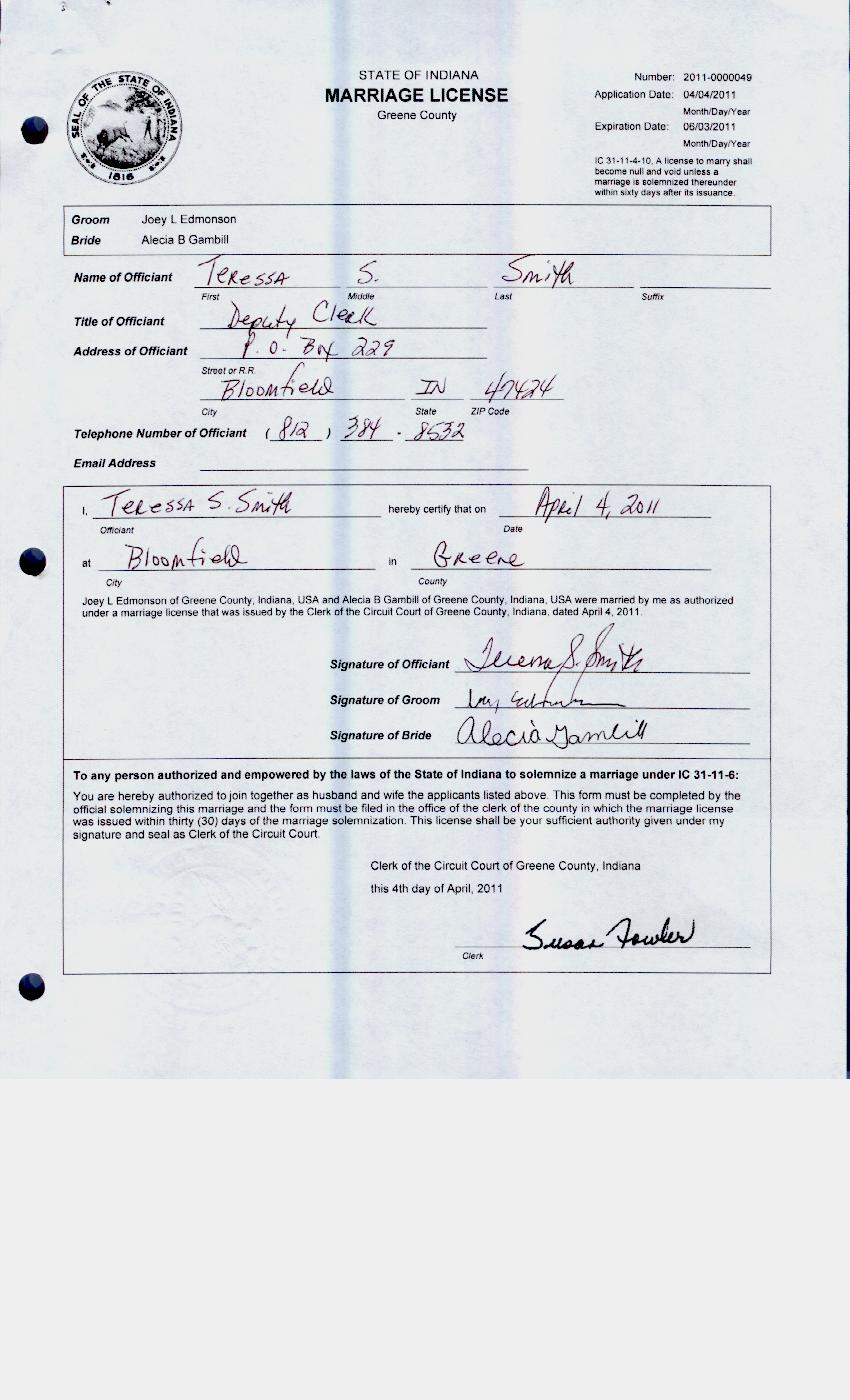 SEAL OF THE STATE OF INDIANA
1816
STATE OF INDIANA
MARRIAGE LICENSE
Greene County
Number: 2011-0000049
Application Date: 04/04/2011
Month/Day/Year
Expiration Date: 06/03/2011
Month/Day/Year
IC 31-11-4-10, A license to marry shall
become null and void unless a
marriage is solemnized thereunder
within sixty days after its issuance.
Groom Joey L Edmonson
Bride Alecia B Gambill
Name of Officiant Teressa S. Smith
First Middle Last Suffix
Title of Officiant Deputy Clerk
Address of Officiant P.O. Box 229
Street or R.R.
Bloomfield IN 47424
City State ZIP Code
Telephone Number of Officiant (812) 384-8532
Email Address
I, Teressa S. Smith hereby certify that on April 4, 2011
Officiant Date
at Bloomfield in Greene
City County
Joey L Edmonson of Greene County, Indiana, USA and Alecia B Gambill of Greene County, Indiana, USA were married by me as authorized
under a marriage license that was issued by the Clerk of the Circuit Court of Greene County, Indiana, dated April 4, 2011.
Signature of Officiant Teressa S. Smith
Signature of Groom
Signature of Bride Alecia Gambill
To any person authorized and empowered by the laws of the State of Indiana to solemnize a marriage under IC 31-11-6:
You are hereby authorized to join together as husband and wife the applicants listed above. This form must be completed by the
official solemnizing this marriage and the form must be filed in the office of the clerk of the county in which the marriage license
was issued within thirty (30) days of the marriage solemnization. This license shall be your sufficient authority given under my
signature and seal as Clerk of the Circuit Court.
Clerk of the Circuit Court of Greene County, Indiana
this 4th day of April, 2011
Susan Fowler
Clerk